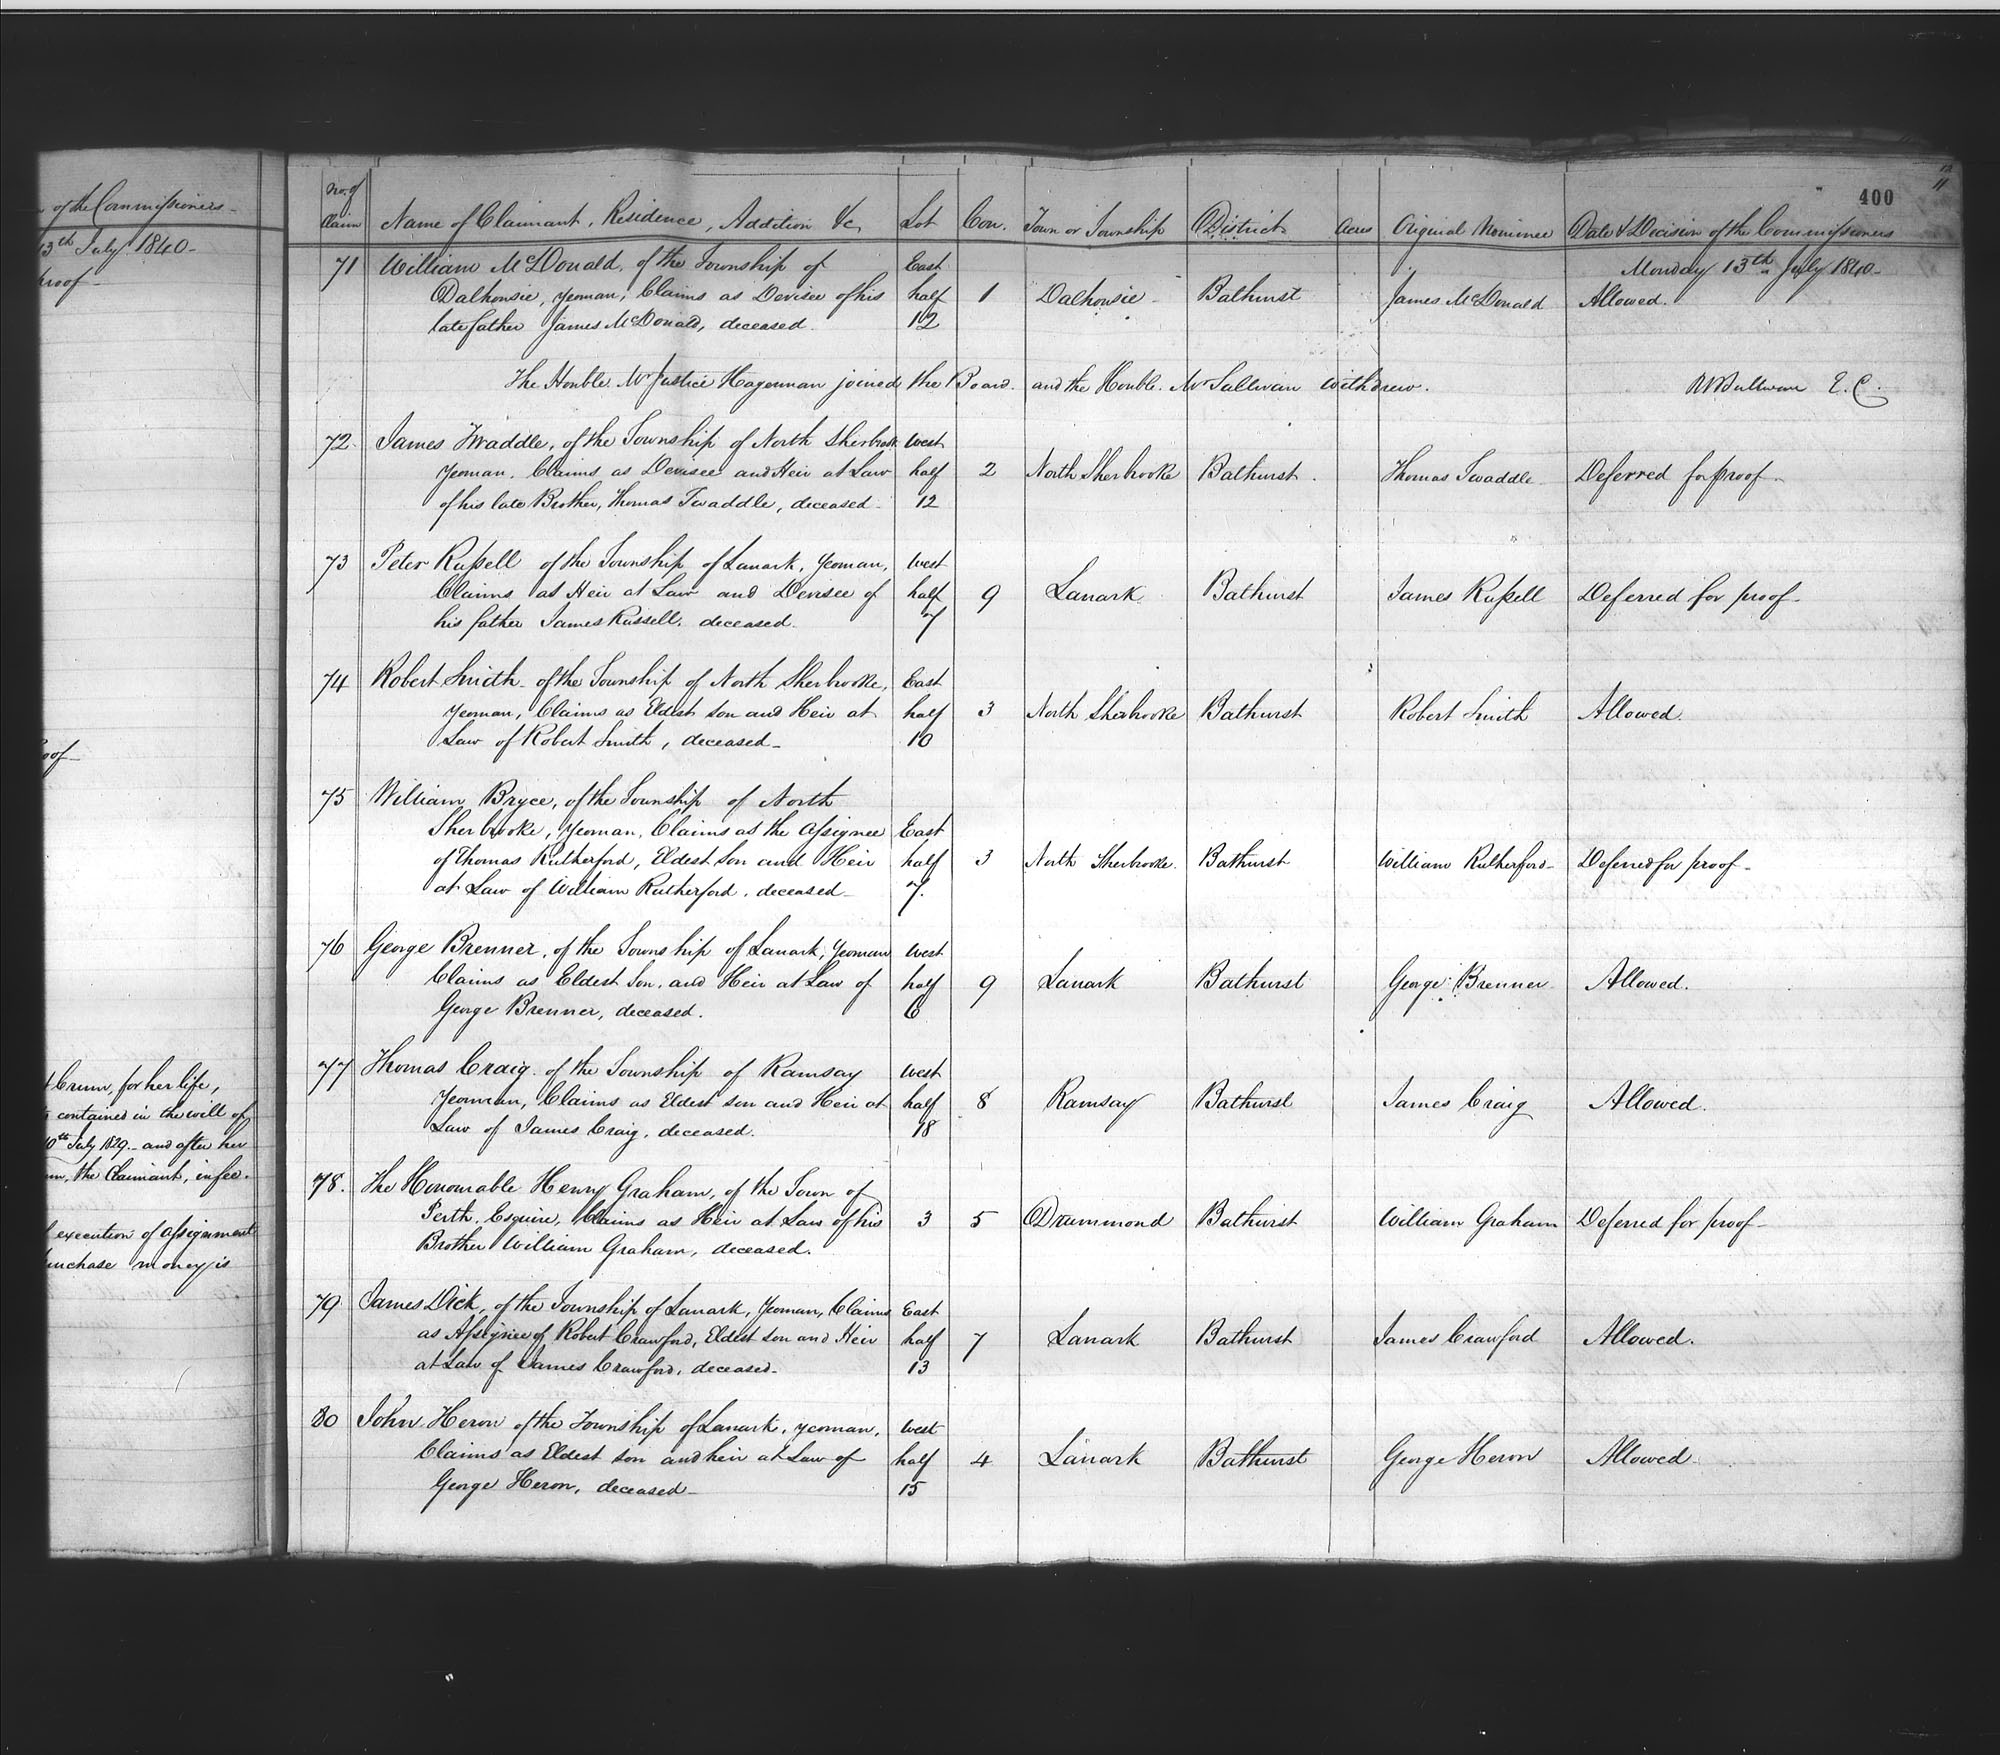 n of the Commissioners
13th July 1840
proof
oof
t Crum, for her life,
contained in the will of
10th July 1829. and after her
the Claimant, in fee.
execution of assignment
purchase money is
400
11
No. of Claim Name of Claimant, Residence, Addition &c Lot Con. Town or Township District Acres Original Nominee Date & Decision of the Commissioners
Monday 13th July 1840
71 William McDonald, of the Township of East
Dalhousie, yeoman, Claims as Devisee of his half 1 Dalhousie Bathurst James McDonald Allowed.
late father James McDonald, deceased. 12
The Honble. Mr Justice Hagerman joined the Board. and the Honble. Mr Sullivan withdrew. E. C.
72 James Twaddle, of the Township of North Sherbrooke West
yeoman. Claims as Devisee and Heir at Law half 2 North Sherbrooke Bathurst. Thomas Twaddle Deferred for proof
of his late Brother, Thomas Twaddle, deceased 12
73 Peter Russell of the Township of Lanark, yeoman, West
Claims as Heir at Law and Devisee of half 9 Lanark Bathurst James Russell Deferred for proof
his father James Russell, deceased. 7
74 Robert Smith of the Township of North Sherbrooke, East
yeoman, Claims as Eldest son and Heir at half 3 North Sherbrooke Bathurst Robert Smith Allowed.
Law of Robert Smith, deceased 10
75 William Bryce, of the Township of North
Sherbrooke, yeoman, Claims as the Assignee East
of Thomas Rutherford, Eldest Son and Heir half 3 North Sherbrooke. Bathurst William Rutherford Deferred for proof
at Law of William Rutherford, deceased 7.
76 George Brenner, of the Township of Lanark, yeoman West
Claims as Eldest Son, and Heir at Law of half 9 Lanark Bathurst George Brenner Allowed.
George Brenner, deceased. 6
77 Thomas Craig of the Township of Ramsay West
yeoman, Claims as Eldest son and Heir at half 8 Ramsay Bathurst James Craig Allowed.
Law of James Craig, deceased. 18
78. The Honourable Henry Graham, of the Town of
Perth, Esquire, Claims as Heir at Law of his 3 5 Drummond Bathurst William Graham Deferred for proof
Brother William Graham, deceased.
79 James Dick, of the Township of Lanark, Yeoman, Claims East
as Assignee of Robert Crawford, Eldest son and Heir half 7 Lanark Bathurst James Crawford Allowed.
at Law of James Crawford, deceased 13
80 John Heron of the Township of Lanark, yeoman, West
Claims as Eldest son and heir at Law of half 4 Lanark Bathurst George Heron Allowed
George Heron, deceased 15